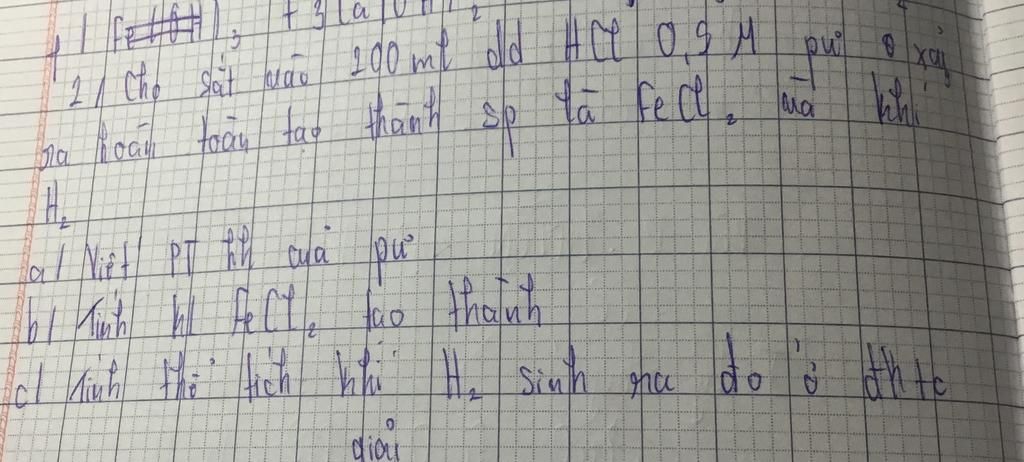 2/ Cho sắt vào 200 ml dd HCl 0,5 M pứ xảy
ra hoàn toàn tạo thành sp là FeCl₂ và khí
H₂
a/ Viết PT hh của pứ
b/ Tính kl FeCl₂ tạo thành
c/ Tính thể tích khí H₂ sinh ra đo ở đktc
giải